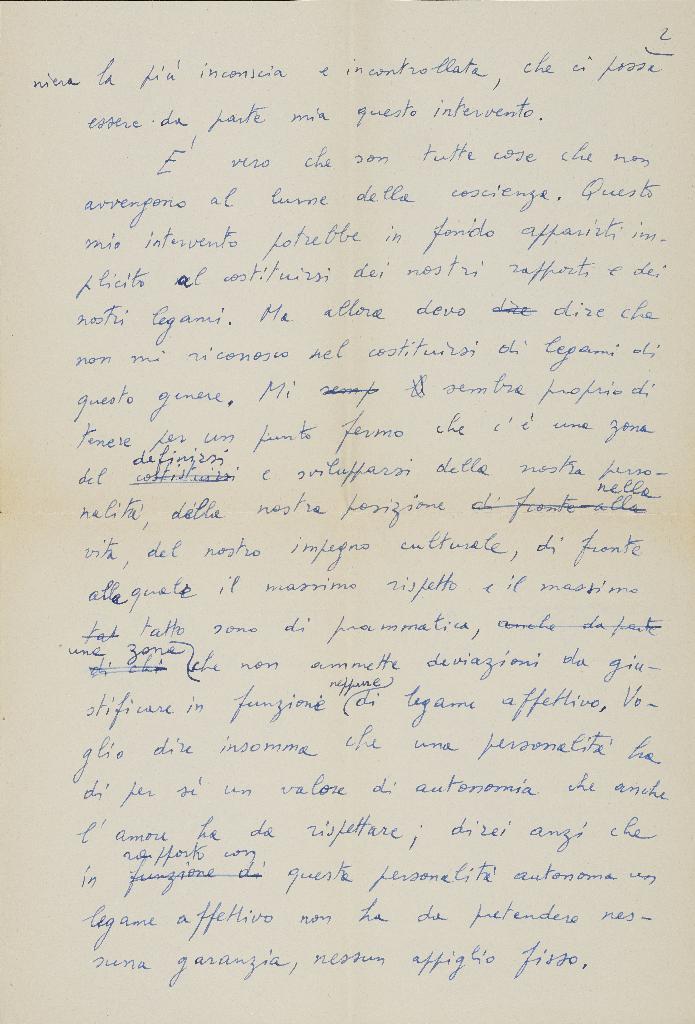 2
niera la più inconscia e incontrollata, che ci possa
essere da parte mia questo intervento.
E' vero che son tutte cose che non
avvengono al lume della coscienza. Questo
mio intervento potrebbe in fondo apparirti im-
plicito al costituirsi dei nostri rapporti e dei
nostri legami. Ma allora devo dire dire che
non mi riconosco nel costituirsi di legami di
questo genere. Mi semp sembra proprio di
tenere per un punto fermo che c'è una zona
definirsi
del costistuirsi e svilupparsi della nostra perso-
nella
nalità, della nostra posizione di fronte alla
vita, del nostro impegno culturale, di fronte
alla quale il massimo rispetto e il massimo
tat tatto sono di prammatica, anche da parte
una zona
di chi che non ammette deviazioni da giu-
neppure
stificare in funzione di legame affettivo. Vo-
glio dire insomma che una personalità ha
di per sé un valore di autonomia che anche
l'amore ha da rispettare; direi anzi che
rapporto con
in funzione di questa personalità autonoma un
legame affettivo non ha da pretendere nes-
suna garanzia, nessun appiglio fisso.